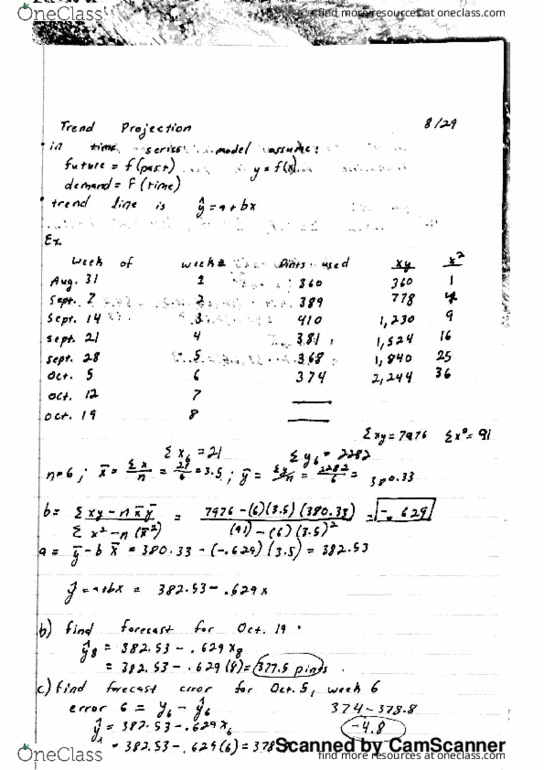 OneClass
find more resources at oneclass.com
8/29
Trend Projection
in time series model assume:
future = f(past) y = f(x)
demand = F(time)
trend line is ŷ = a + bx
Ex.
week of week # Pints used xy x²
Aug. 31 1 360 360 1
Sept. 7 2 389 778 4
Sept. 14 3 410 1,230 9
Sept. 21 4 381 1,524 16
Sept. 28 5 368 1,840 25
Oct. 5 6 374 2,244 36
Oct. 12 7
Oct. 19 8
Σxy = 7976 Σx² = 91
Σx₆ = 21 Σy₆ = 2282
n=6; x̄ = Σx/n = 21/6 = 3.5; ȳ = Σy/n = 2282/6 = 380.33
b = Σxy - n x̄ȳ / Σx² - n(x̄²) = 7976 - (6)(3.5)(380.33) / (91) - (6)(3.5)² = -.629
a = ȳ - b x̄ = 380.33 - (-.629)(3.5) = 382.53
ŷ = a + bx = 382.53 - .629x
b) find forecast for Oct. 19
ŷ₈ = 382.53 - .629x₈
= 382.53 - .629(8) = 377.5 pints
c) find forecast error for Oct. 5, week 6
error 6 = y₆ - ŷ₆ 374 - 378.8
ŷ = 382.53 - .629x₆ -4.8
= 382.53 - .629(6) = 378
Scanned by CamScanner
OneClass
find more resources at oneclass.com